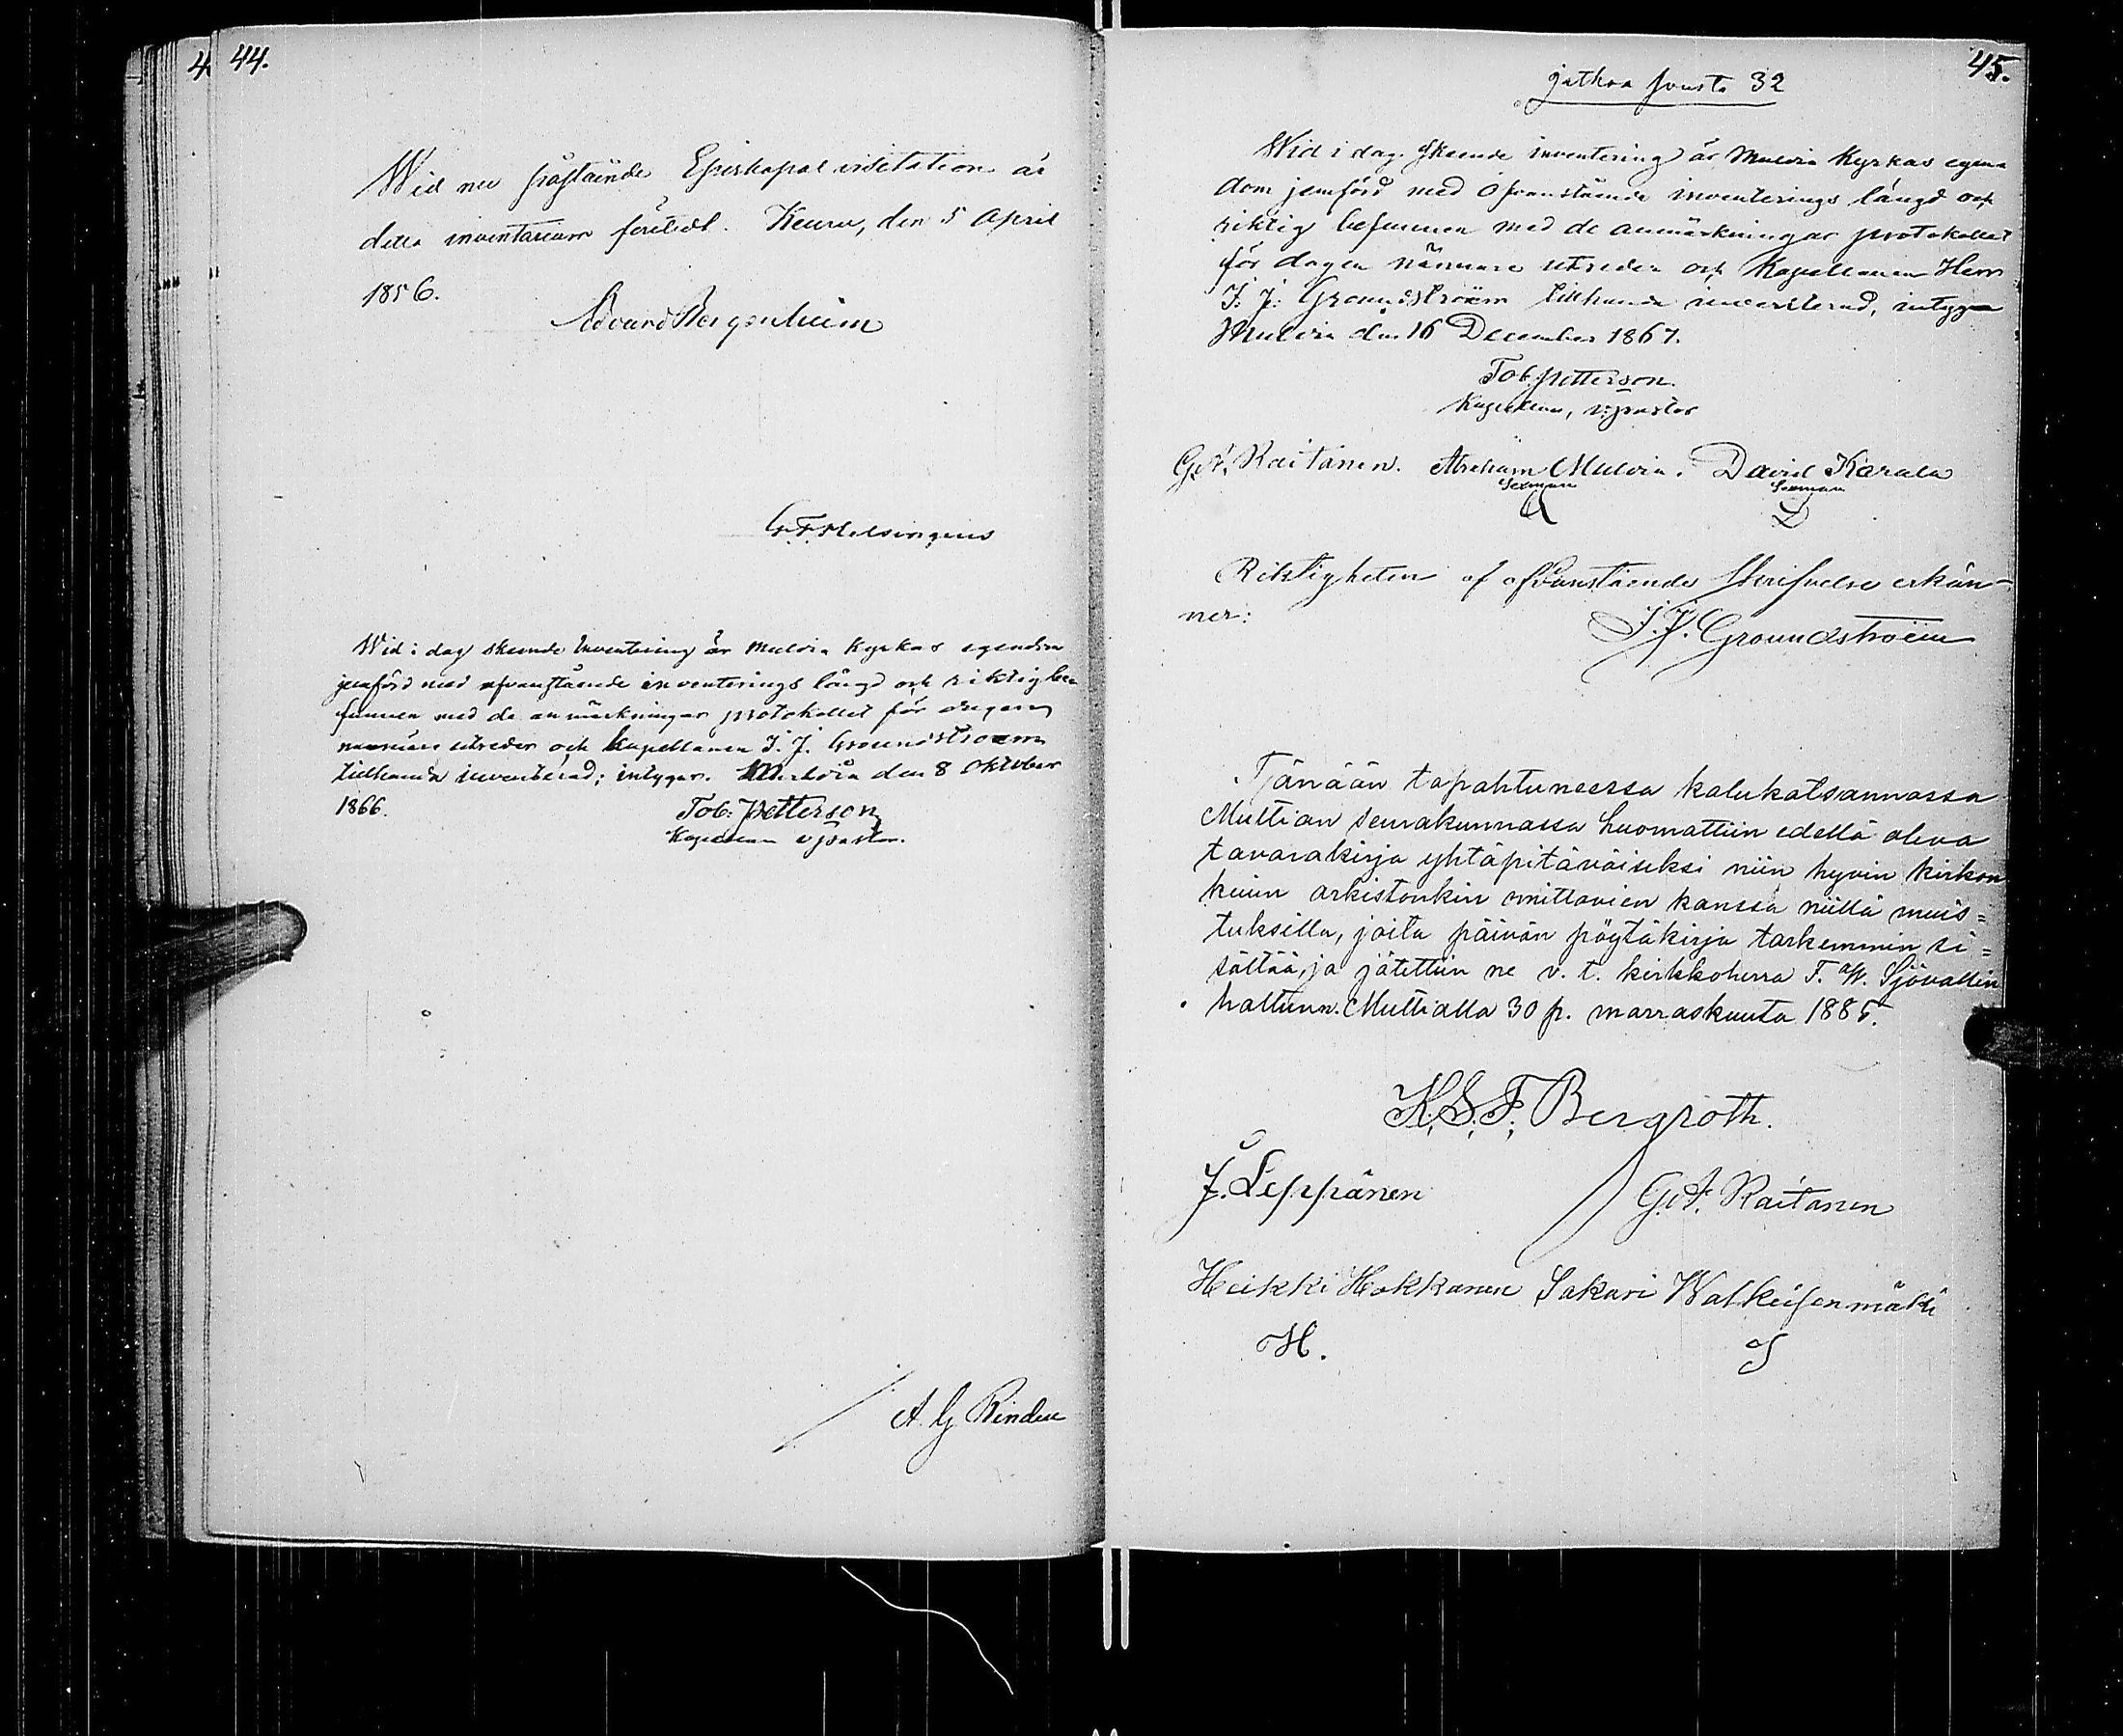 4
44.
Wid nu påstående Episkopal visitation är
detta inventarium företedt. Keuru, den 5 April
1856.
Edvard Bergenheim
G. F. Helsingius
Wid i dag skeende Inventering är Multia Kyrkas egendom
jemförd med ofvanstående inventerings längd och riktig be-
funnen med de anmärkningar protokollet för dagen
närmare utreder och Kapellanen J. J. Groundstroem
tillhanda inventerad; intygar. Multia den 8 Oktober
1866.
Tob: Petterson
Kapellan v pastor.
A. G. Rindell
45.
jatkoa sivusta 32
Wid i dag skeende inventering är Multia Kyrkas egen-
dom jemförd med ofvanstående inventerings längd och
riktig befunnen med de anmärkningar protokollet
för dagen närmare utreder och Kapellanen Herr
J. J. Groundstroem tillhanda inventerad, intygar
Multia den 16 December 1867.
Tob. Petterson.
Kapellan, v: pastor
G. A. Raitanen. Abraham Multia. David Karala
Sexman Sexman
A D
Riktigheten af ofvanstående skrifvelse erkän-
ner:
J. J. Groundstroem
Tänään tapahtuneessa kalukatsannossa
Multian seurakunnassa huomattiin edellä oleva
tavarakirja yhtäpitäväiseksi niin hyvin kirkon
kuin arkistonkin omittavien kanssa niillä muis=
tuksilla, joita päivän pöytäkirja tarkemmin si=
sältää, ja jätettiin ne v. t. kirkkoherra F. W. Sjövallin
haltuun. Multialla 30 p. marraskuuta 1885.
K. S. F. Bergroth.
J. Leppänen G. A. Raitanen
Heikki Hokkanen Sakari Walkeisenmäki
H. S